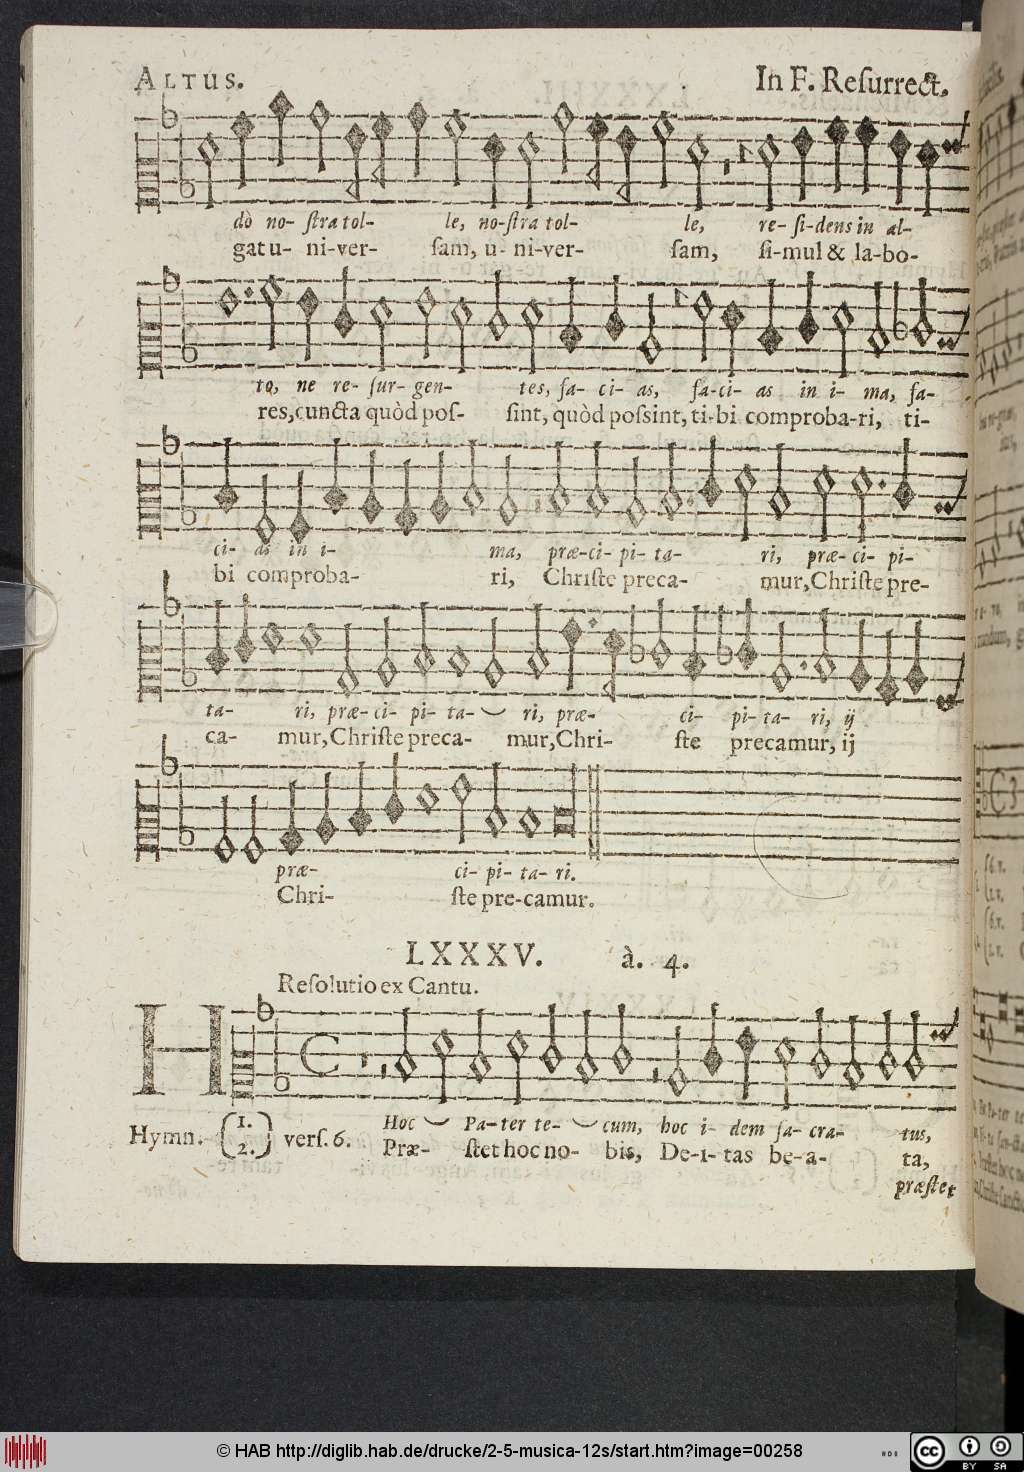 ALTUS.
In F. Reſurrect.
dò no- ſtra tol- le, no-ſtra tol- le, re- ſi-dens in al-
gat u- ni-ver- ſam, u- ni-ver- ſam, ſi-mul & la-bo-
to, ne re- ſur- gen- tes, fa- ci- as, fa-ci- as in i- ma, fa-
res, cuncta quòd poſ- ſint, quòd poſsint, ti-bi comproba-ri, ti-
ci- as in i- ma, præ-ci- pi- ta- ri, præ- ci- pi-
bi comproba- ri, Chriſte preca- mur, Chriſte pre-
ta- ri, præ-ci- pi- ta- ri, præ- ci- pi- ta- ri, ij
ca- mur, Chriſte preca- mur, Chri- ſte precamur, ij
præ- ci- pi- ta- ri.
Chri- ſte pre-camur.
LXXXV. à. 4.
Reſolutio ex Cantu.
H
Hoc Pa-ter te- cum, hoc i- dem ſa- cra- tus,
Hymn. 1. 2. verſ. 6. Præ- ſtet hoc no- bis, De-i- tas be-a- ta,
præſtet
© HAB http://diglib.hab.de/drucke/2-5-musica-12s/start.htm?image=00258
cc BY SA